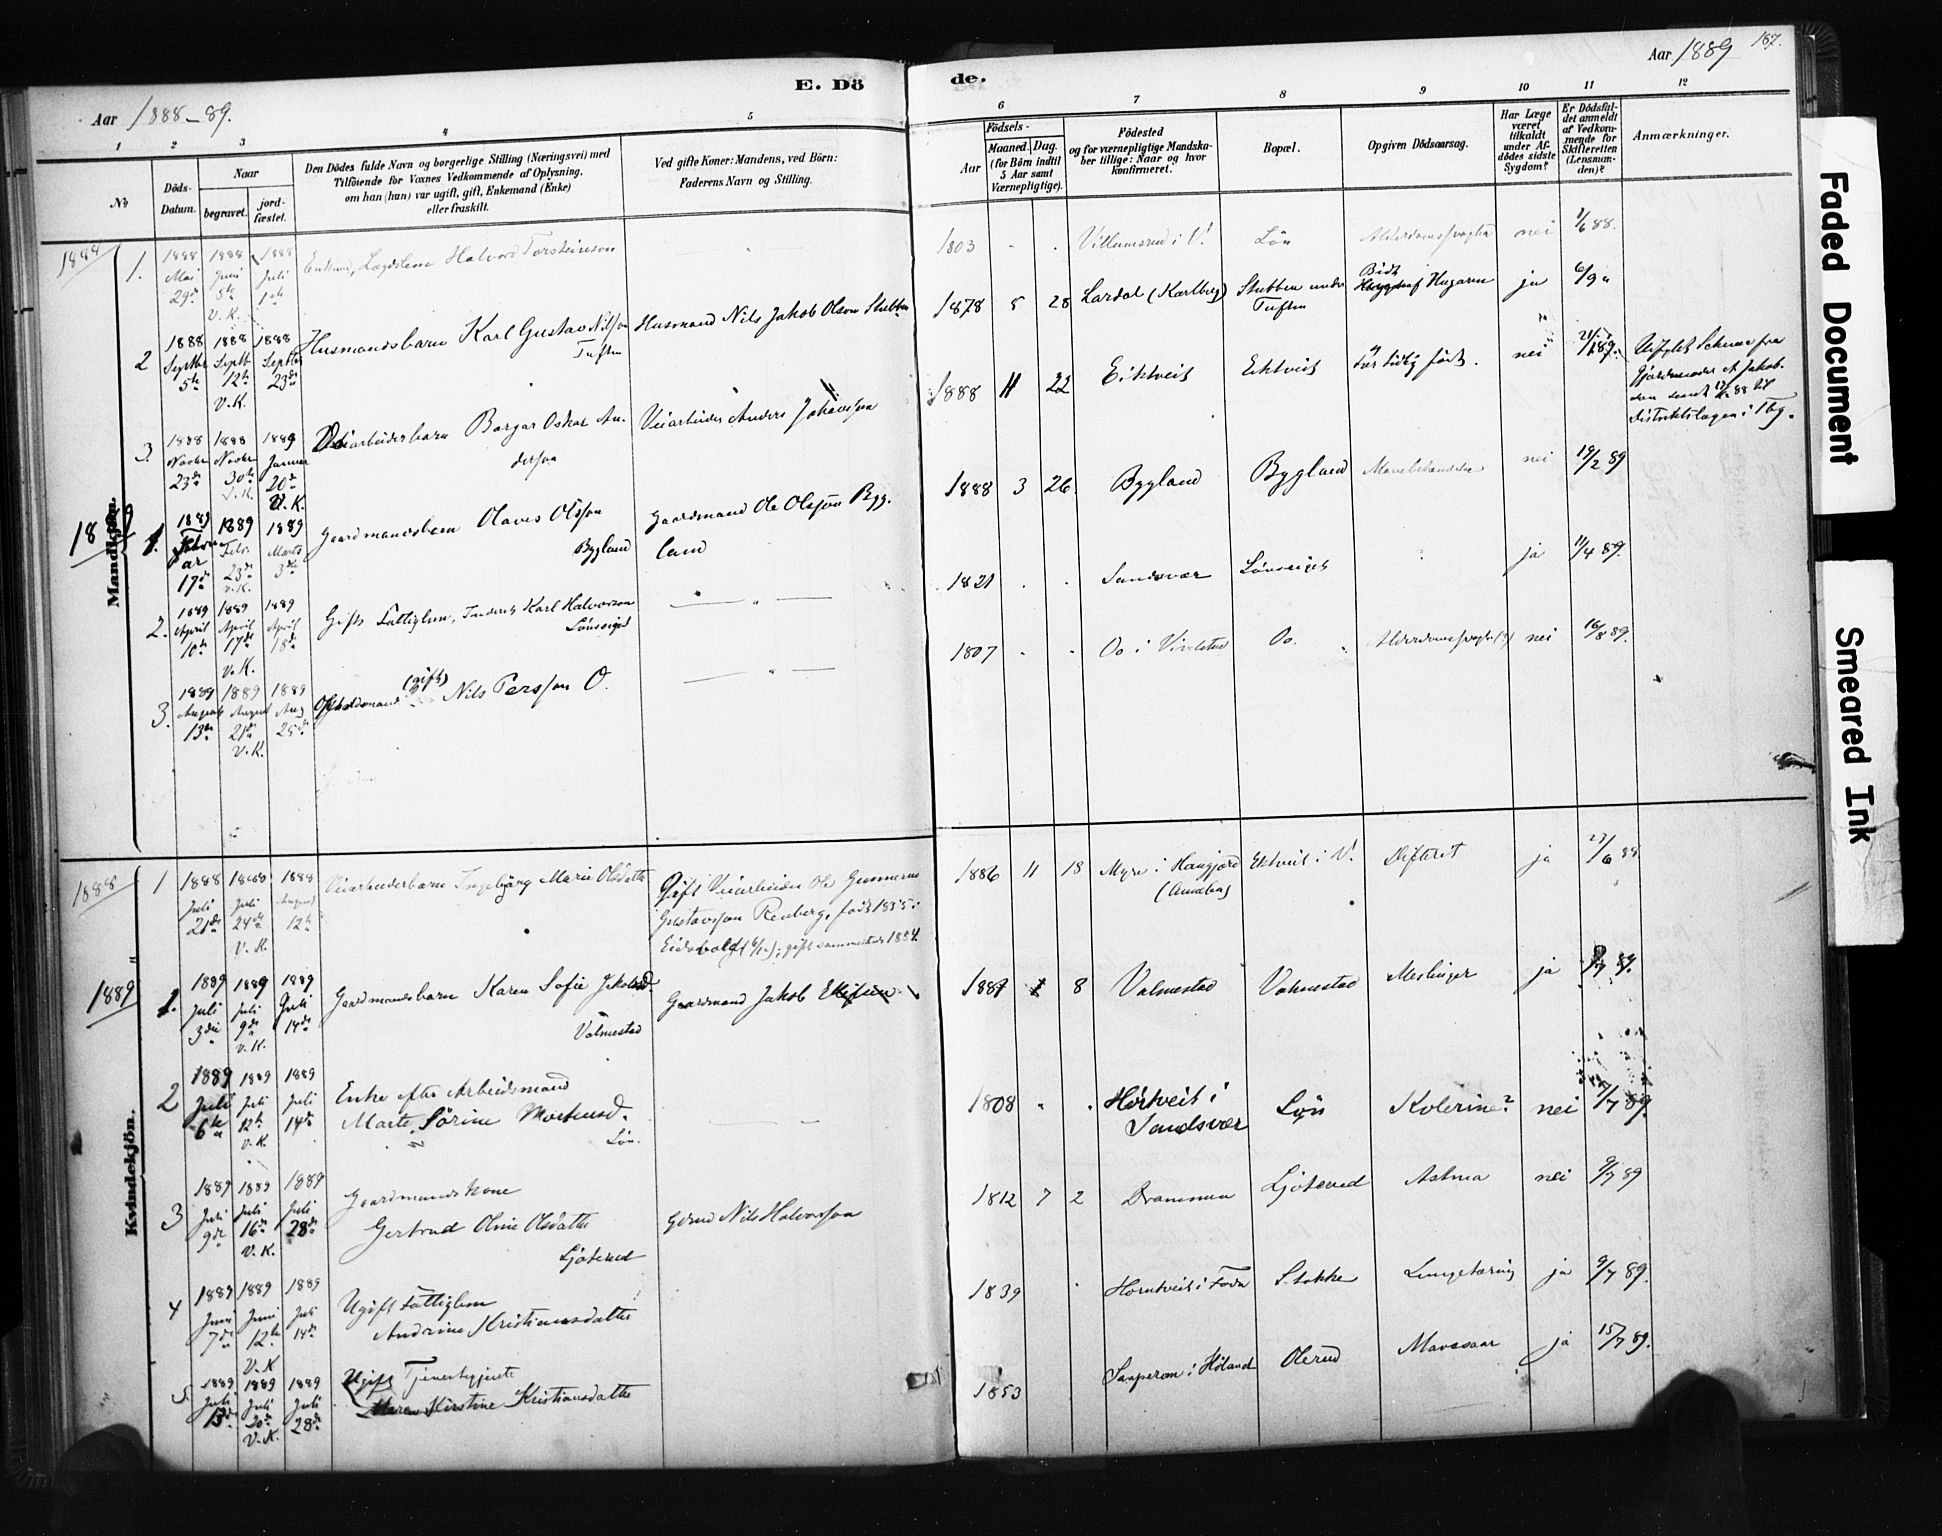 Aar 1888-89.
E. Dö
de.
Aar 1889
187.
1 2 3 4 5 6 7 8 9 10 11 12
No
Döds-
Datum.
Naar
begravet.
jord-
fæstet.
Den Dödes fulde Navn og borgerlige Stilling (Næringsvei) med
Tilföiende for Voxnes Vedkommende af Oplysning,
om han (hun) var ugift, gift, Enkemand (Enke)
eller fraskilt.
Ved gifte Koner: Mandens, ved Börn:
Faderens Navn og Stilling.
Födsels-
Aar
Maaned. Dag.
(for Börn indtil
5 Aar samt
Værnepligtige).
Födested
og for værnepligtige Mandska-
ber tillige: Naar og hvor
konfirmeret.
Bopæl.
Opgiven Dödsaarsag.
Har Læge
været
tilkaldt
under Af-
dödes sidste
Sygdom?
Er Dödsfal-
det anmeldt
af Vedkom-
mende for
Skifteretten
(Lensman-
den)?
Anmærkninger.
Mandkjön.
1888
1. 1888 Mai 29de 1888 Juni 5te V.K. 1888 Juli 1ste
Lægdslem Halvord Torsteinson
1803 Villumsrud i V. Lön nei 1/6 88.
2 1888 Septbr 5te 1888 Septb 12te V.K. 1888 Septbr 23de
Husmandsbarn Karl Gustav Nilsson
Tuften
Husmand Nils Jakob Olson Stubben
1878 5 28 Lardal (Karlberg) Stubben under
Tuften
Bidt af Hugorm ja 6/9 "
3. 1888 Novbr 23de 1888 Novbr 30te V.K. 1889 Januar 20de V.K.
Veiarbeiderbarn Borgar Oskar An-
dersson
Veiarbeider Anders Johansson
1888 11 22 Eiktveit Eiktveit for tidlig födt. nei
Jakob-
sen sendt
Distriktslægen i Tbg.
1889
1. 1889 Februar 17de 1889 Febr. 23de V.K. 1889 Marts 3die
Gaardmandsbarn Olaves Olsson
Bygland
Gaardmand Ole Olsson Byg-
land
1888 3 26. Bygland Bygland nei 19/2 89
2. 1889 April 10de 1889 April 17de V.K. 1889 April 18de
Gift Fattiglem, Karl Halvorson
Lönseiged
1821 Sandsvær ja 11/4 89.
3. 1889 August 13de 1889 August 21de V.K. 1889 Aug 25de
(gift)
Nils Persson O.
1807 Oo i Vivestad Oo. nei 16/8 89.
Kvindekjön.
1888
1 1888 Juli 21de 1888 Juli 24de V.K. 1888 August 12te
Veiarbeiderbarn Ingeborg Marie Olsdatter
Gift Veiarbeider Ole Gunnerius
Gustavsson Renberg, födt 1855 i
Eidsvold gift sammesteds 1884.
1886 11 18 Myre i Haugjord Eiktveit i V. Difterit ja
1889
1. 1889 Juli 3die 1889 Juli 9de V.K. 1889 Juli 14de
Gaardmandsbarn Karen Sofie Jakobsd.
Valmestad
Gaardmand Jakob
8 Valmestad Valmestad Meslinger ja
2 1889 Juli 6te 1889 Juli 12te V.K. 1889 Juli 14de
Enke efter Arbeidsmand
Marte Sörine Mortensd.
Lön.
1808 Hörtveit i
Sandsvær
Lön Kolerine? nei 7/7 89.
3 1889 Juli 9de 1889 Juli 16de V.K. 1889 Juli 28de
Gaardmandskone
Gertrud Oline Olsdatter
Ljöterud
Grdmd Nils Halvorson
1812 7 2 Drammen Ljöterud Astma nei 9/7 89
4 1889 Juni 7de 1889 Juni 12te V.K. 1889 Juli 14de
Ugift Fattiglem
Andrine Kristiansdatter
1839 Horntveit i Fodn Stokke Lungetæring ja 9/7 89.
5. 1889 Juli 13de 1889 Juli 20de V.K. 1889 Juli 28de
Ugift Tjenestepige
Maren Kirstine Kristiansdatter
1853 i Höland Olerud Mavesaar ja 15/7 89.
Faded Document
Smeared Ink